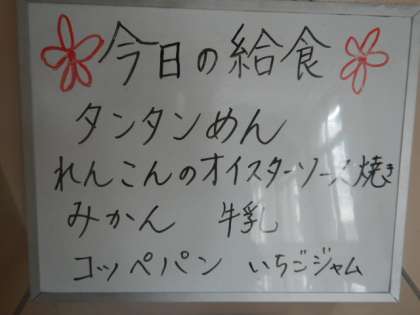 今日の給食
タンタンめん
れんこんのオイスターソース焼き
みかん 牛乳
コッペパン いちごジャム